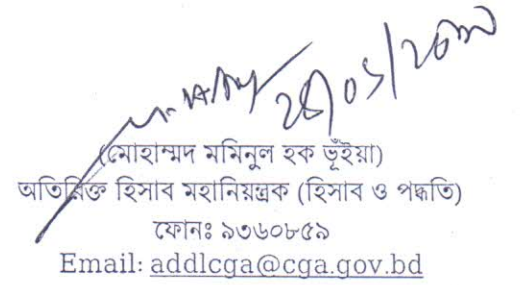 (মোহাম্মদ মমিনুল হক ভূঁইয়া)
অতিরিক্ত হিসাব মহানিয়ন্ত্রক (হিসাব ও পদ্ধতি)
ফোনঃ ৯৩৬০৮৫৯
Email: addlcga@cga.gov.bd